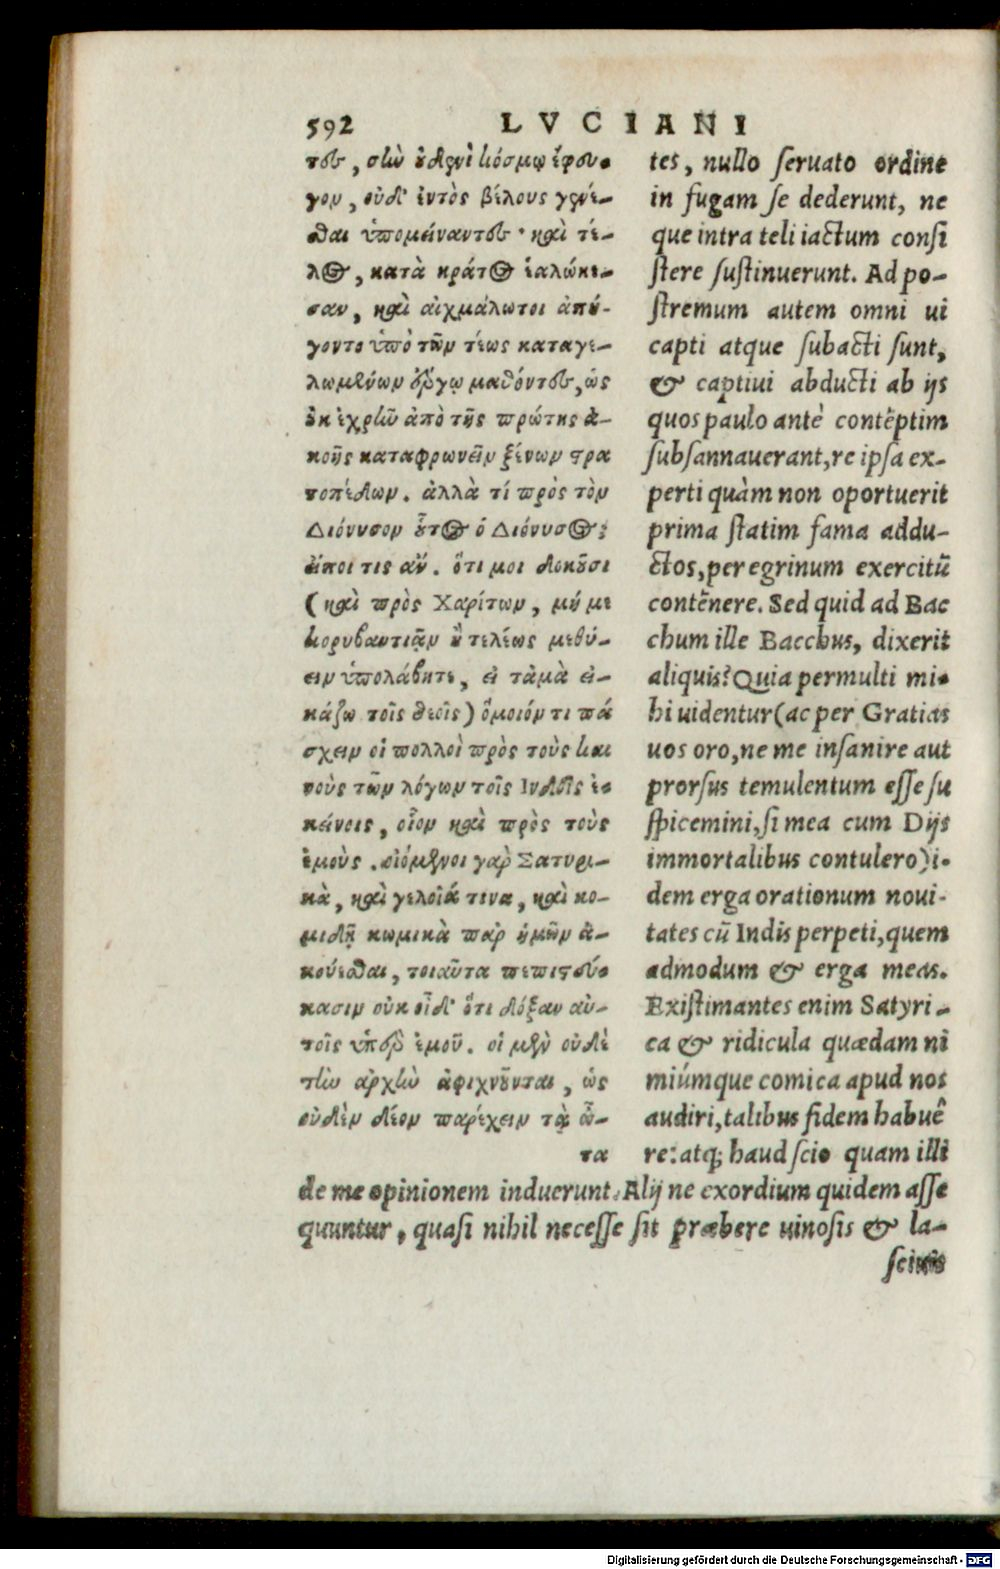 592 LVCIANI
τες, σὺν οὐδενὶ κόσμῳ ἔφευ-
γον, οὐδ' ἐντὸς βέλους γενέ-
σθαι ὑπομείναντες· καὶ τέ-
λος, κατὰ κράτος ἑαλώκε-
σαν, καὶ αἰχμάλωτοι ἀπή-
γοντο ὑπὸ τῶν τέως καταγε-
λωμένων ἔργῳ μαθόντες, ὡς
οὐκ ἐχρῆν ἀπὸ τῆς πρώτης ἀ-
κοῆς καταφρονεῖν ξένων στρα
τοπέδων. ἀλλὰ τί πρὸς τὸν
Διόνυσον οὗτος ὁ Διόνυσος;
εἴποι τις ἄν. ὅτι μοι δοκοῦσι
(καὶ πρὸς Χαρίτων, μή με
κορυβαντιᾷν ἢ τελέως μεθύ-
ειν ὑπολάβητε, εἰ τἀμὰ εἰ-
κάζω τοῖς θεοῖς) ὅμοιόν τι πά
σχειν οἱ πολλοὶ πρὸς τοὺς και
νοὺς τῶν λόγων τοῖς Ἰνδοῖς ἐ-
κείνοις, οἷον καὶ πρὸς τοὺς
ἐμούς. οἰόμενοι γὰρ Σατυρι-
κὰ, καὶ γελοῖά τινα, καὶ κο-
μιδῇ κωμικὰ παρ' ἡμῶν ἀ-
κούεσθαι, τοιαῦτα πεπιστεύ-
κασιν οὐκ οἶδ' ὅτι δόξαν αὐ-
τοῖς ὑπὲρ ἐμοῦ. οἱ μὲν οὐδὲ
τὴν ἀρχὴν ἀφιχνοῦνται, ὡς
οὐδὲν δέον παρέχειν τὰ ὦ-
τα
tes, nullo seruato ordine
in fugam se dederunt, ne
que intra teli iactum consi
stere sustinuerunt. Ad po-
stremum autem omni ui
capti atque subacti sunt,
& captiui abducti ab ijs
quos paulo antè contẽptim
subsannauerant, re ipsa ex-
perti quàm non oportuerit
prima statim fama addu-
ctos, peregrinum exercitũ
contẽnere. Sed quid ad Bac
chum ille Bacchus, dixerit
aliquis? Quia permulti mi-
hi uidentur (ac per Gratias
uos oro, ne me insanire aut
prorsus temulentum esse su
spicemini, si mea cum Dijs
immortalibus contulero) i-
dem erga orationum noui-
tates cũ Indis perpeti, quem
admodum & erga meas.
Existimantes enim Satyri-
ca & ridicula quædam ni
miúmque comica apud nos
audiri, talibus fidem habuê
re: atq; haud scio quam illi
de me opinionem induerunt. Alij ne exordium quidem asse
quuntur, quasi nihil necesse sit præbere uinosis & la-
sciuis
Digitalisierung gefördert durch die Deutsche Forschungsgemeinschaft - DFG